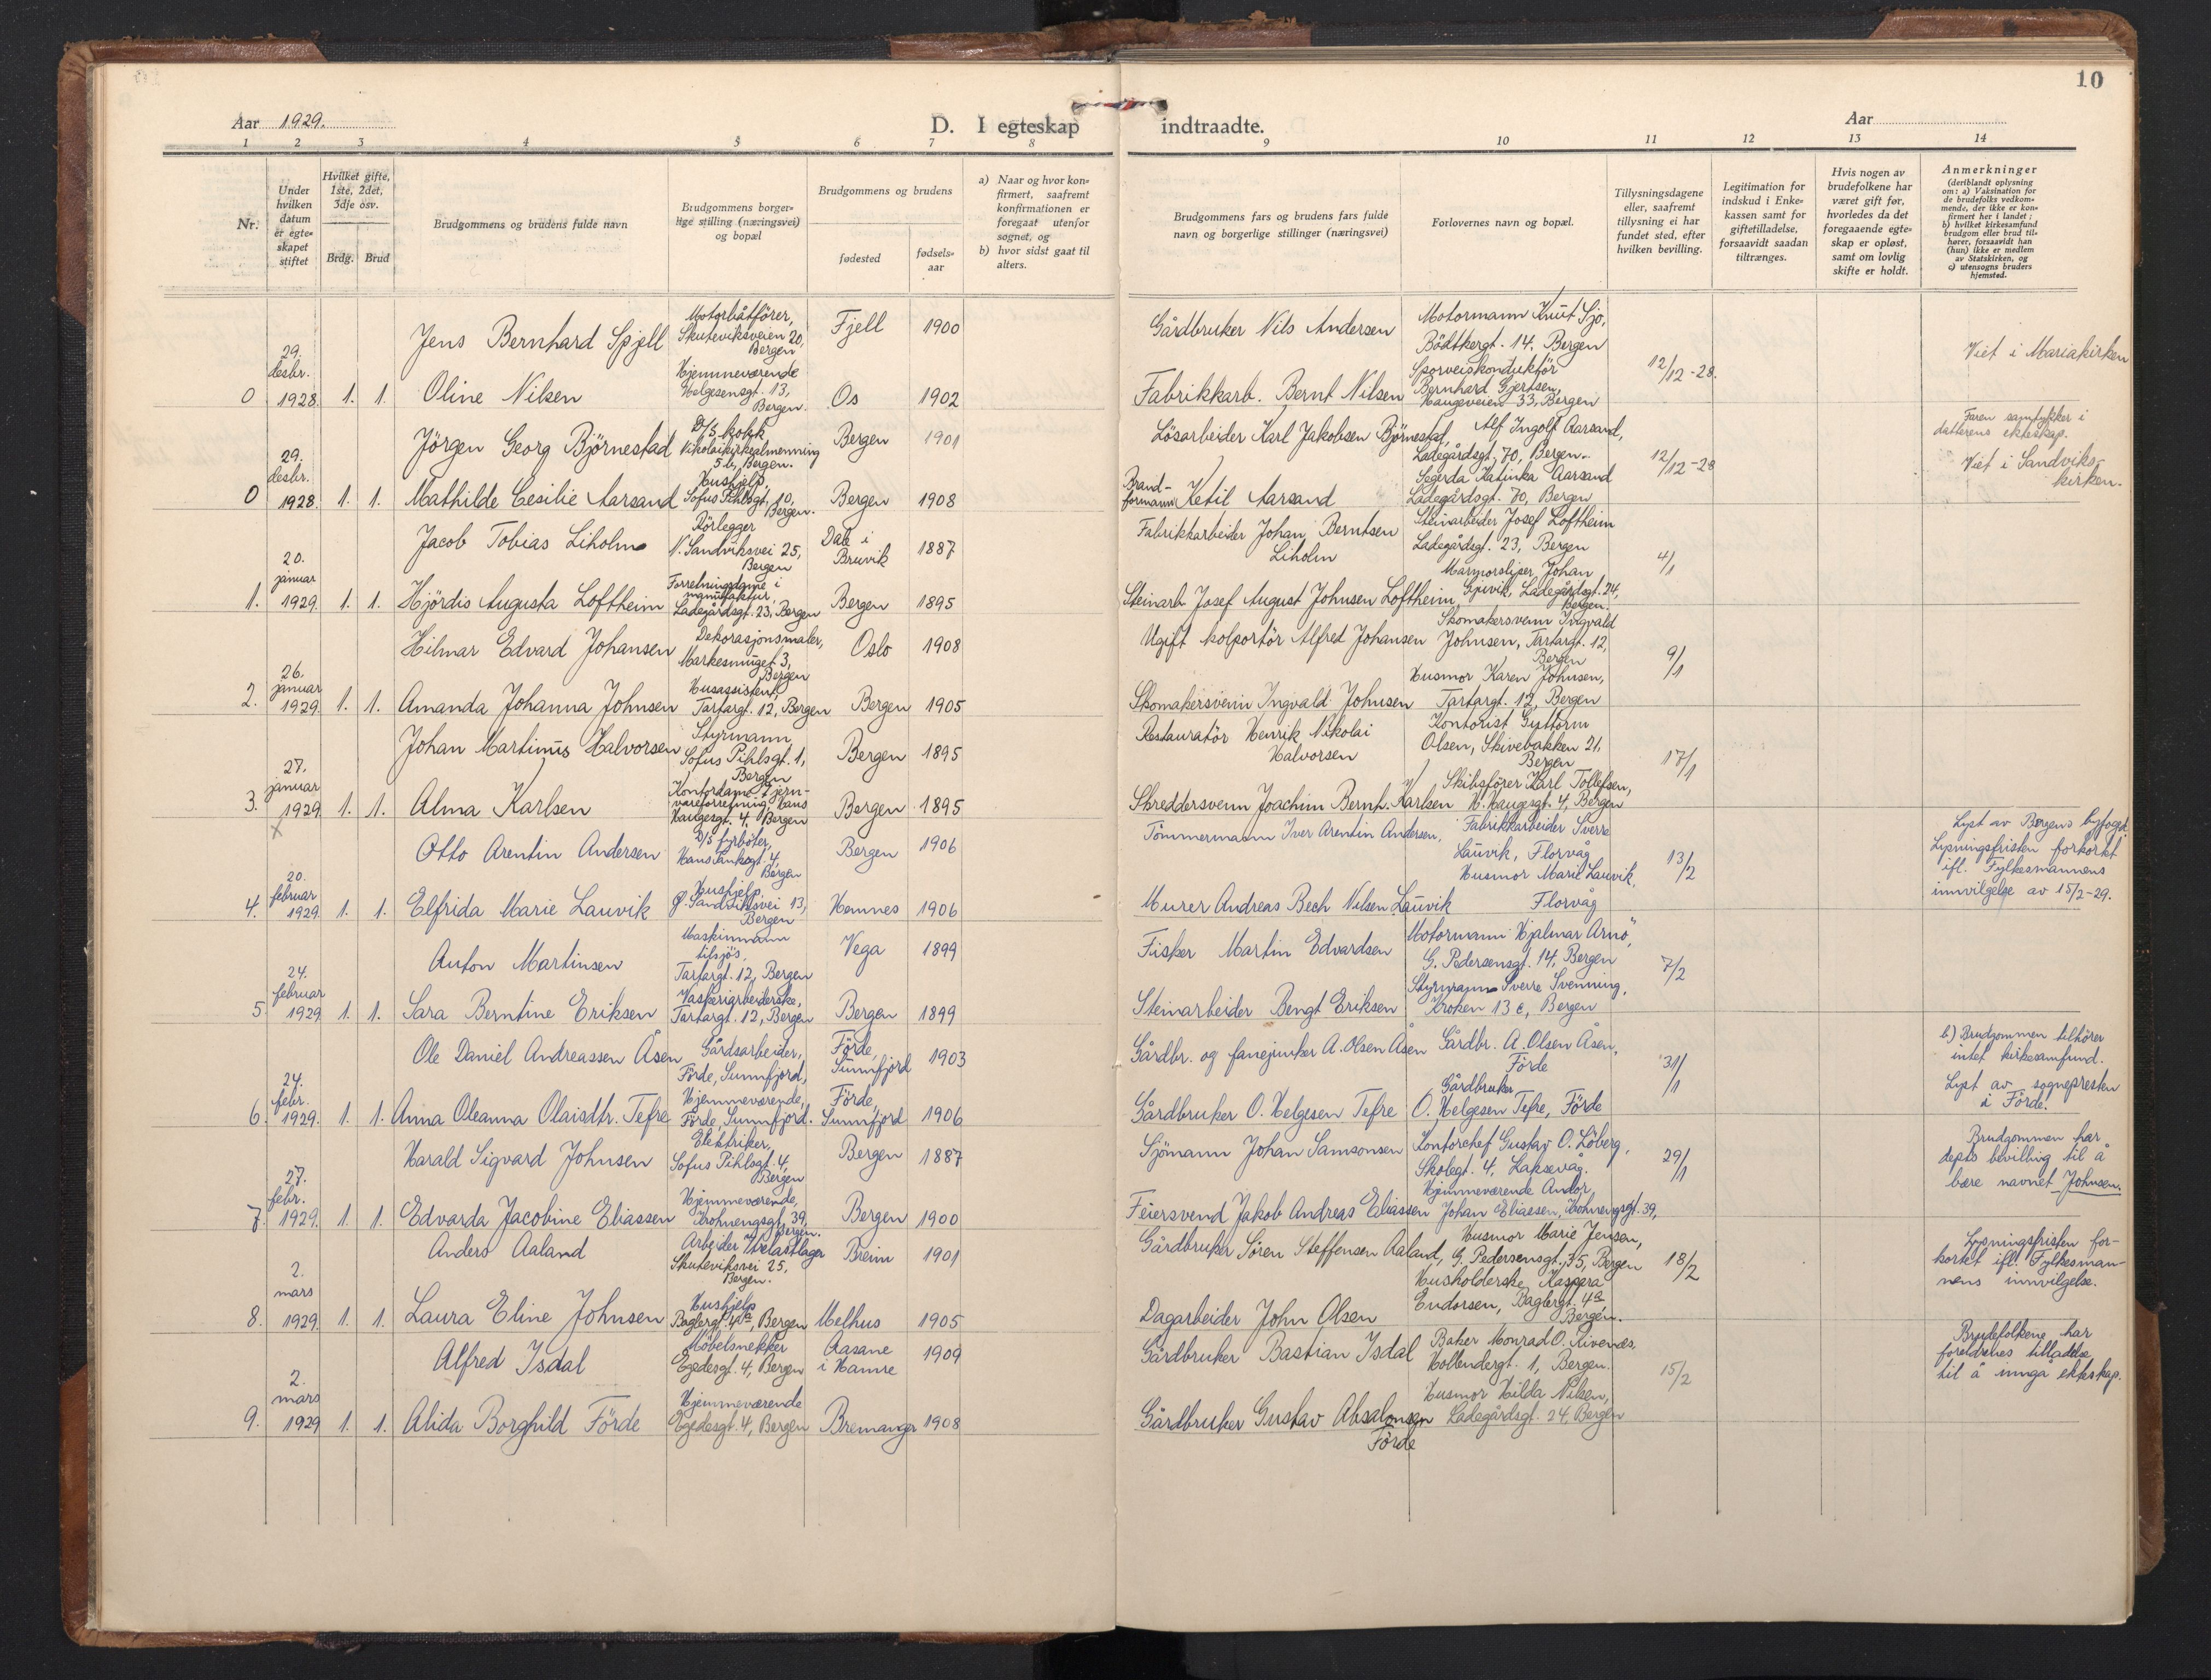 10
Aar 1929.
D. I egteskap indtraadte.
Aar
1 2 3 4 5 6 7 8 9 10 11 12 13 14
Nr.
Under hvilken datum er egteskapet stiftet
Hvilket gifte, 1ste, 2det, 3dje osv.
Brdg. Brud
Brudgommens og brudens fulde navn
Brudgommens borgerlige stilling (næringsvei) og bopæl
Brudgommens og brudens
fødested
fødselsaar
a) Naar og hvor konfirmert, saafremt konfirmationen er foregaat utenfor sognet, og
b) hvor sidst gaat til alters.
Brudgommens fars og brudens fars fulde navn og borgerlige stillinger (næringsvei)
Forlovernes navn og bopæl.
Tillysningsdagene eller, saafremt tillysning ei har fundet sted, efter hvilken bevilling.
Legitimation for indskud i Enkekassen samt for giftetilladelse, forsaavidt saadan tiltrænges.
Hvis nogen av brudefolkene har været gift før, hvorledes da det foregaaende egteskap er opløst, samt om lovlig skifte er holdt.
Anmerkninger
(deriblandt oplysning om: a) Vaksination for de brudefolks vedkommende, der ikke er konfirmert her i landet; b) hvilket kirkesamfund brudgom eller brud tilhører, forsaavidt han (hun) ikke er medlem av Statskirken, og c) utensogns bruders hjemsted.
0 29. desbr. 1928. 1. 1.
Jens Bernhard Spjell
Motorbåtförer, Skuteviksveien 20, Bergen
Fjell 1900
Gårdbruker Nils Andersen
Motormann Knut Sjo, Bödtkergt. 14, Bergen
12/12-28.
Viet i Mariakirken
Oline Nilsen
Hjemmeværende Helgesensgt. 13, Bergen.
Os 1902
Fabrikkarb. Bernt Nilsen
Sporveiskonduktör Bernhard Gjertsen, Haugeveien 33, Bergen
0 29. desbr. 1928. 1. 1.
Jörgen Georg Björnestad
D/S kokk Nikolaikirkealmenning 5b, Bergen.
Bergen 1901
Lösarbeider Karl Jakobsen Björnestad,
Alf Ingolf Aarsand, Ladegårdsgt. 70, Bergen.
12/12-28
Faren samtykker i datterens ekteskap.
Viet i Sandvikskirken.
Mathilde Cesilie Aarsand
Hushjelp, Sofus Pihlsgt. 10, Bergen.
Bergen 1908
Brandformann Ketil Aarsand
Segerda Katinka Aarsand Ladegårdsgt. 70, Bergen
1. 20. januar 1929. 1. 1.
Jacob Tobias Liholm
Rörlegger N. Sandviksvei 25, Bergen
Dale i Bruvik 1887
Fabrikkarbeider Johan Berntsen Liholm
Steinarbeider Josef Loftheim Ladegårdsgt. 23, Bergen
4/1
Hjördis Augusta Loftheim
Forretningsdame i manufaktur, Ladegårdsgt. 23, Bergen
Bergen 1895
Steinarb Josef August Johnsen Loftheim,
Marmorsliper Johan Gjuvik, Ladegårdsgt. 24, Bergen.
2. 26. januar 1929 1. 1.
Hilmar Edvard Johansen
Dekorasjonsmaler, Markesmuget 3, Bergen
Oslo 1908
Ugift kolportör Alfred Johansen
Skomakersvenn Ingvald Johnsen, Tartargt. 12, Bergen
9/1
Amanda Johanna Johnsen
Husassistent, Tartargt. 12, Bergen
Bergen 1905
Skomakersvenn Ingvald Johnsen
Husmor Karen Johnsen, Tartargt. 12, Bergen
3. 27. januar 1929 1. 1.
Johan Martinus Halvorsen
Styrmann, Sofus Pihlsgt. 1, Bergen
Bergen 1895
Restauratör Henrik Nikolai Halvorsen
Kontorist Guttorm Olsen, Skivebakken 21, Bergen
17/1
Alma Karlsen
Kontordame i jernvareforretning, Hans Haugesgt. 4, Bergen
Bergen 1895
Skreddersvenn Joachim Bernh. Karlsen
Skibsförer Karl Tollefsen, H. Haugesgt. 4, Bergen
X
4. 20. februar 1929 1. 1.
Otto Arentin Andersen
D/S fyrböter, Hans Tanksgt. 4, Bergen
Bergen 1906
Tömmermann Iver Arentin Andersen,
Fabrikkarbeider Sverre Lauvik, Florvåg
13/2
Lyst av Bergens byfoged.
Lysningsfristen forkortet ifl. Fylkesmannens innvilgelse av 15/2-29.
Elfrida Marie Lauvik
Hushjelp, Ø. Sandviksvei 13, Bergen
Hemnes 1906
Murer Andreas Bech Nilsen Lauvik
Husmor Marie Lauvik, Florvåg
5. 24. februar 1929 1. 1.
Anton Martinsen
Maskinmann tilsjös, Tartargt. 12, Bergen
Vega 1899
Fisker Martin Edvardsen
Motormann Hjalmar Arnö, G. Pedersensgt. 14, Bergen
7/2
Sara Berntine Eriksen
Vaskeriarbeiderske, Tartargt. 12, Bergen
Bergen 1899
Steinarbeider Bengt Eriksen
Styrmann Sverre Svenning, Kroken 13 c, Bergen
6. 24. febr. 1929. 1. 1.
Ole Daniel Andreassen Åsen
Gårdsarbeider, Förde, Sunnfjord,
Förde, Sunnfjord 1903
Gårdbr. og fanejunker A. Olsen Åsen
Gårdbr. A. Olsen Åsen, Förde
31/1
b) Brudgommen tilhörer intet kirkesamfund.
Lyst av sognepresten i Förde.
Anna Oleanna Olaisdtr. Tefre
Hjemmeværende, Förde, Sunnfjord.
Förde, Sunnfjord 1906
Gårdbruker O. Helgesen Tefre
Gårdbruker O. Helgesen Tefre, Förde
7. 27. febr. 1929. 1. 1.
Harald Sigvard Johnsen
Elektriker, Sofus Pihlsgt. 4, Bergen
Bergen 1887
Sjömann Johan Samsonsen
Kontorchef Gustav O. Löberg, Skolegt. 4, Laksevåg.
29/1
Brudgommen har depts bevilling til å bære navnet Johnsen.
Edvarda Jacobine Eliassen
Hjemmeværende, Krohnengsgt. 39, Bergen.
Bergen 1900
Feiersvend Jakob Andreas Eliassen
Hjemmeværende Andor Johan Eliassen, Krohnengsgt. 39,
8. 2. mars 1929. 1. 1.
Anders Aaland
Arbeider Skuteviksvei 25, Bergen.
Breim 1901
Gårdbruker Sören Steffensen Aaland,
Husmor Marie Jensen, G. Pedersensgt. 35, Bergen
18/2
Lysningsfristen forkortet ifl. Fylkesmannens innvilgelse.
Laura Eline Johnsen
Hushjelp Baglergt. 4a, Bergen
Melhus 1905
Dagarbeider John Olsen
Husholderske Kaspera Endorsen, Baglergt. 4a Bergen.
9. 2. mars 1929 1. 1.
Alfred Isdal
Möbelsnekker Egedesgt. 4, Bergen
Aasane i Hamre 1909
Gårdbruker Bastian Isdal
Baker Monrad O. Rivenes, Hollendergt. 1, Bergen.
15/2
Brudefolkene har foreldrenes tilladelse til å inngå ekteskap.
Alida Borghild Förde
Hjemmeværende Egedesgt. 4, Bergen
Bremanger 1908
Gårdbruker Gustav Absalonsen Förde
Husmor Hilda Nilsen, Ladegårdsgt. 24, Bergen